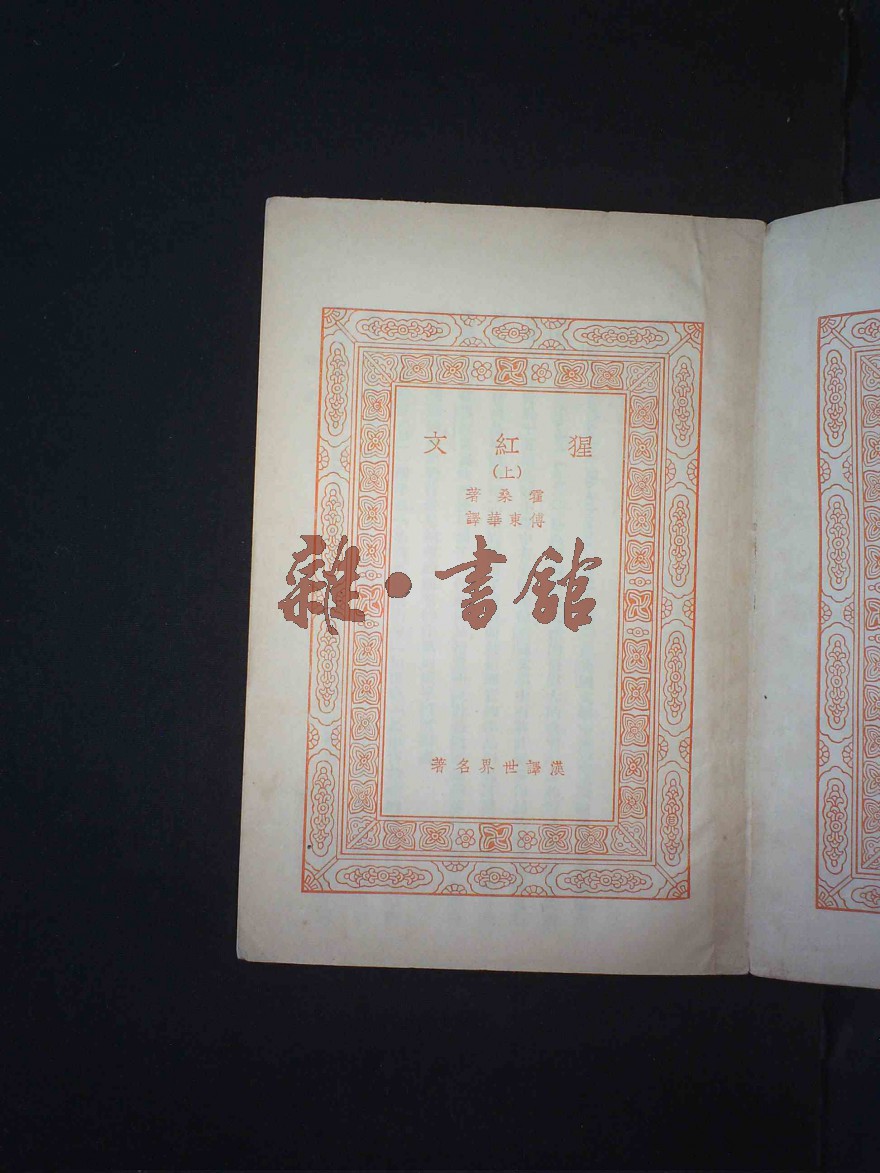 猩紅文
(上)
霍桑著
傅東華譯
雜·書館
漢譯世界名著